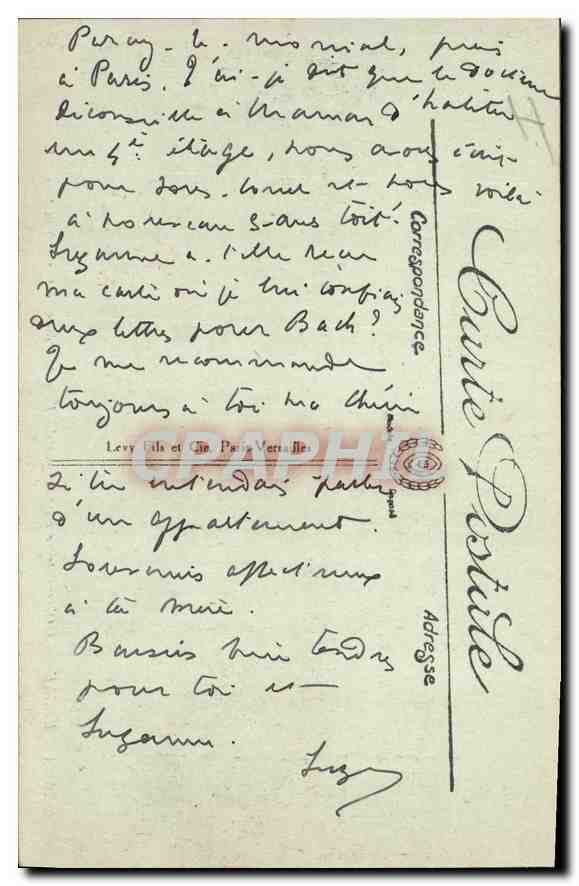 Paray-le-monial, puis
à Paris. T'ai-je dit que le Docteur
déconseille à Maman d'habiter
un 5e étage, nous avons écrit
pour sous-louer et nous voilà
à nouveau sans toit!
Suzanne a-t-elle reçu
ma carte où je lui confiais
deux lettres pour Bach?
Je me recommande
toujours à toi ma chérie
Levy Fils et Cie, Paris-Versailles
si tu entendais parler
d'un appartement.
Souvenirs affectueux
à ta mère.
Baisers bien tendres
pour toi et
Suzanne.
Carte Postale
Correspondance
Adresse
CPAPHIL